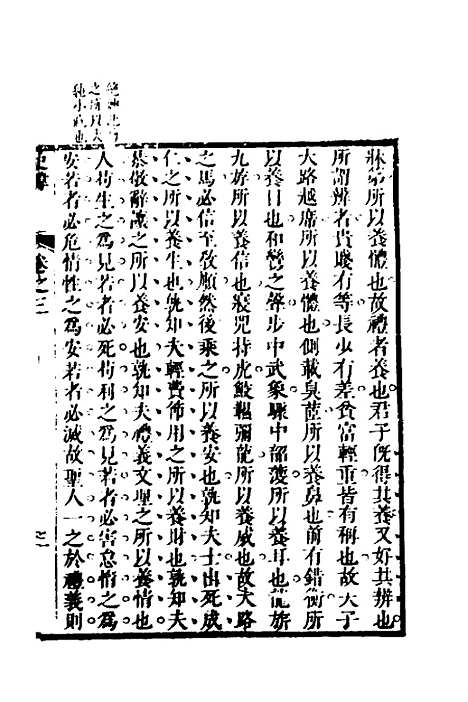 牀第所以養體也故禮者養也君子既得其養又好其辨也
所謂辨者貴賤有等長少有差貧富輕重皆有稱也故大子
大路越席所以養體也側載臭茝所以養鼻也前有錯衡所
以養目也和鸞之聲步中武象驟中韶濩所以養耳也龍旂
九斿所以養信也寢兕持虎鮫韅彌龍所以養威也故大路
之馬必信至敎順然後乘之所以養安也孰知夫士出死成
仁之所以養生也孰知夫輕費佈用之所以養財也孰知夫
恭敬辭讓之所以養安也孰知夫禮義文理之所以養情也
人苟生之爲見若者必死苟利之爲見若者必害怠惰之爲
安若者必危情性之爲安若者必滅故聖人一之於禮義則
之所以大
卷之三